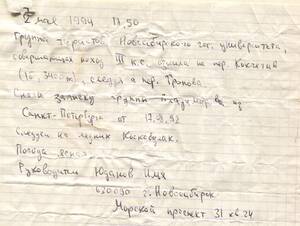 2 мая 1994 11.50
Группа туристов Новосибирского гос. университета,
совершающая поход III к.с. вышла на пер. Коксай
(1Б, 3400м), следуя с пер. Тронова.
Сняли записку группы из
Санкт-Петербурга от 12.8.92
Следуем на ледник
Погода ясная
Руководитель Юданов
630090 г. Новосибирск
Морской проспект 31 кв. 24